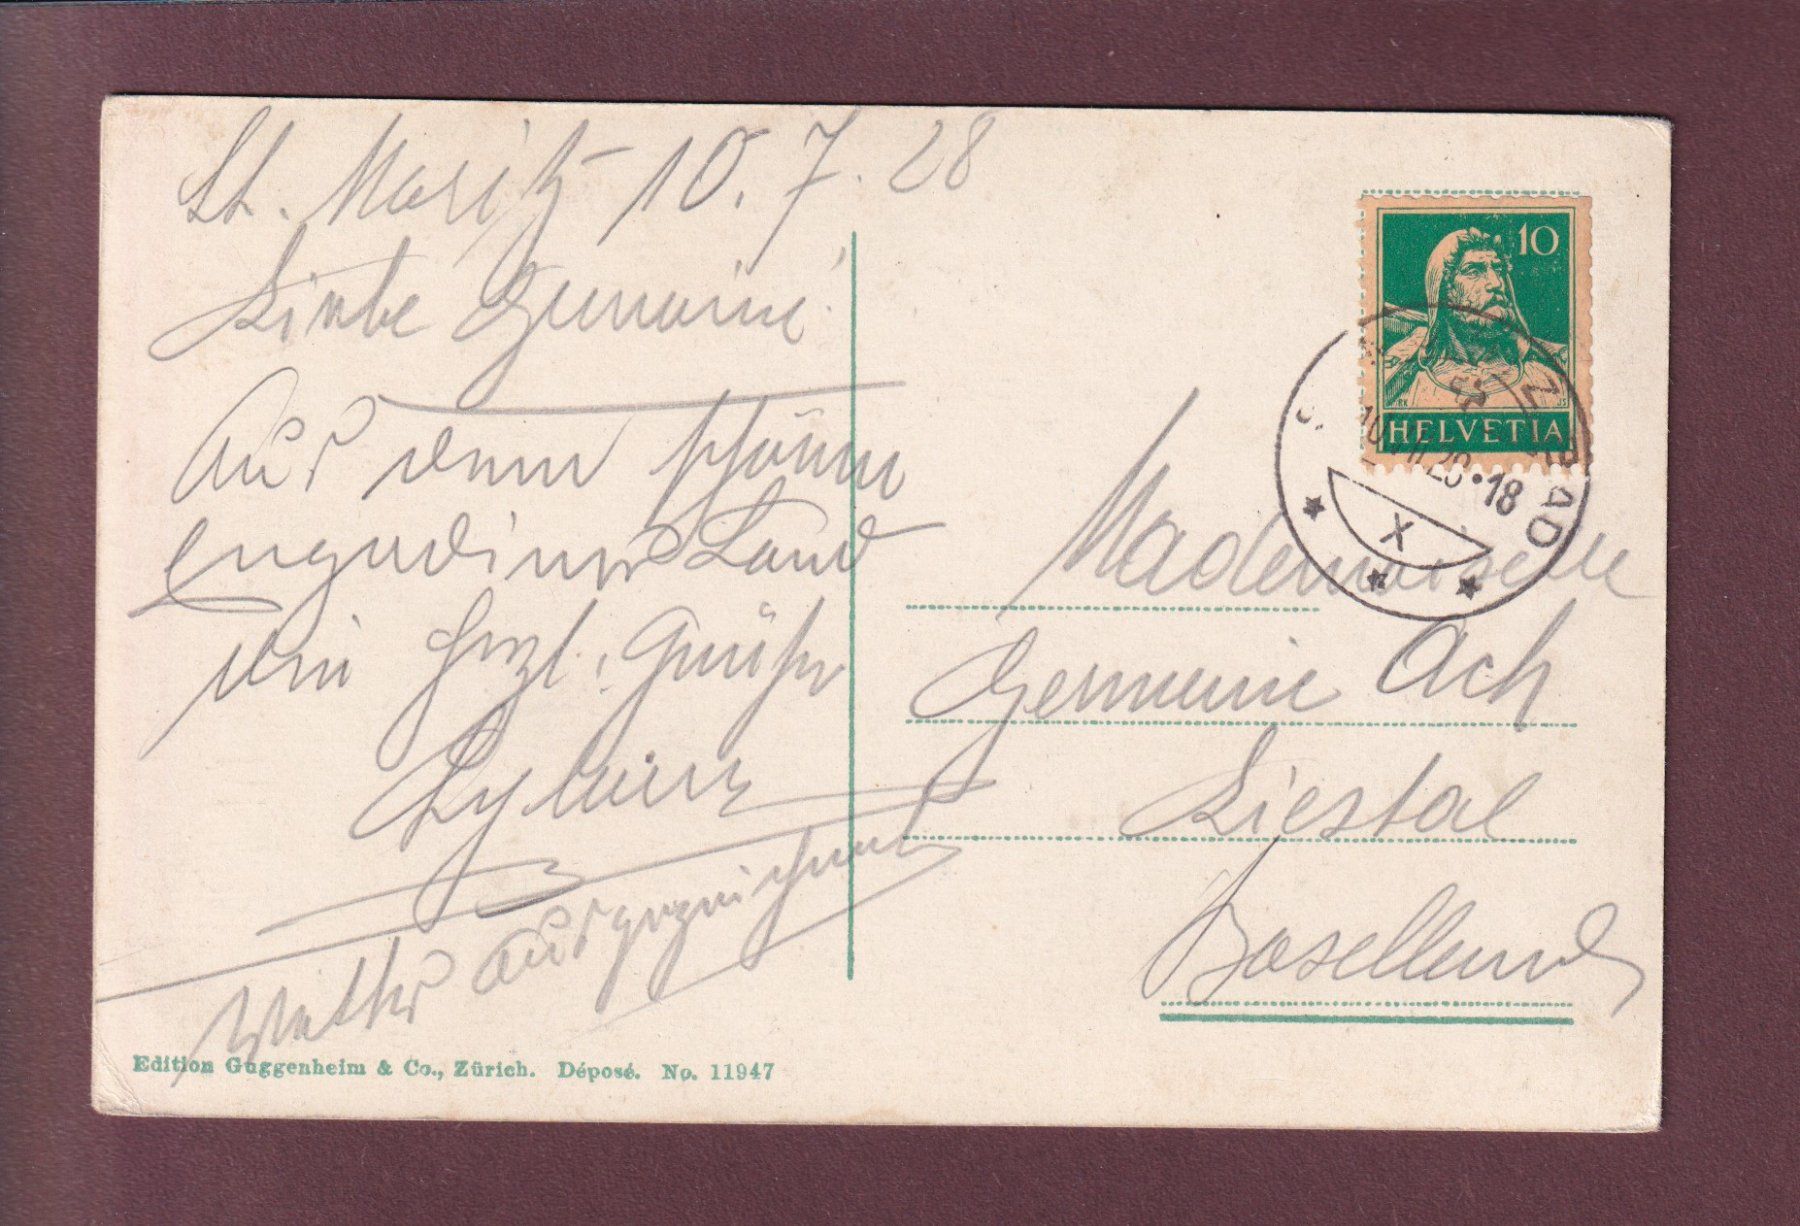 St. Moritz 10. 7. 28
Liebe Germaine!
Aus dem schönen
Engadiner Land
die herzl. Grüsse
Wetter ausgezeichnet
10
HELVETIA
BAD
18
X
Mademoiselle
Germaine Ach
Liestal
Baselland
Edition Guggenheim & Co., Zürich. Déposé. No. 11947